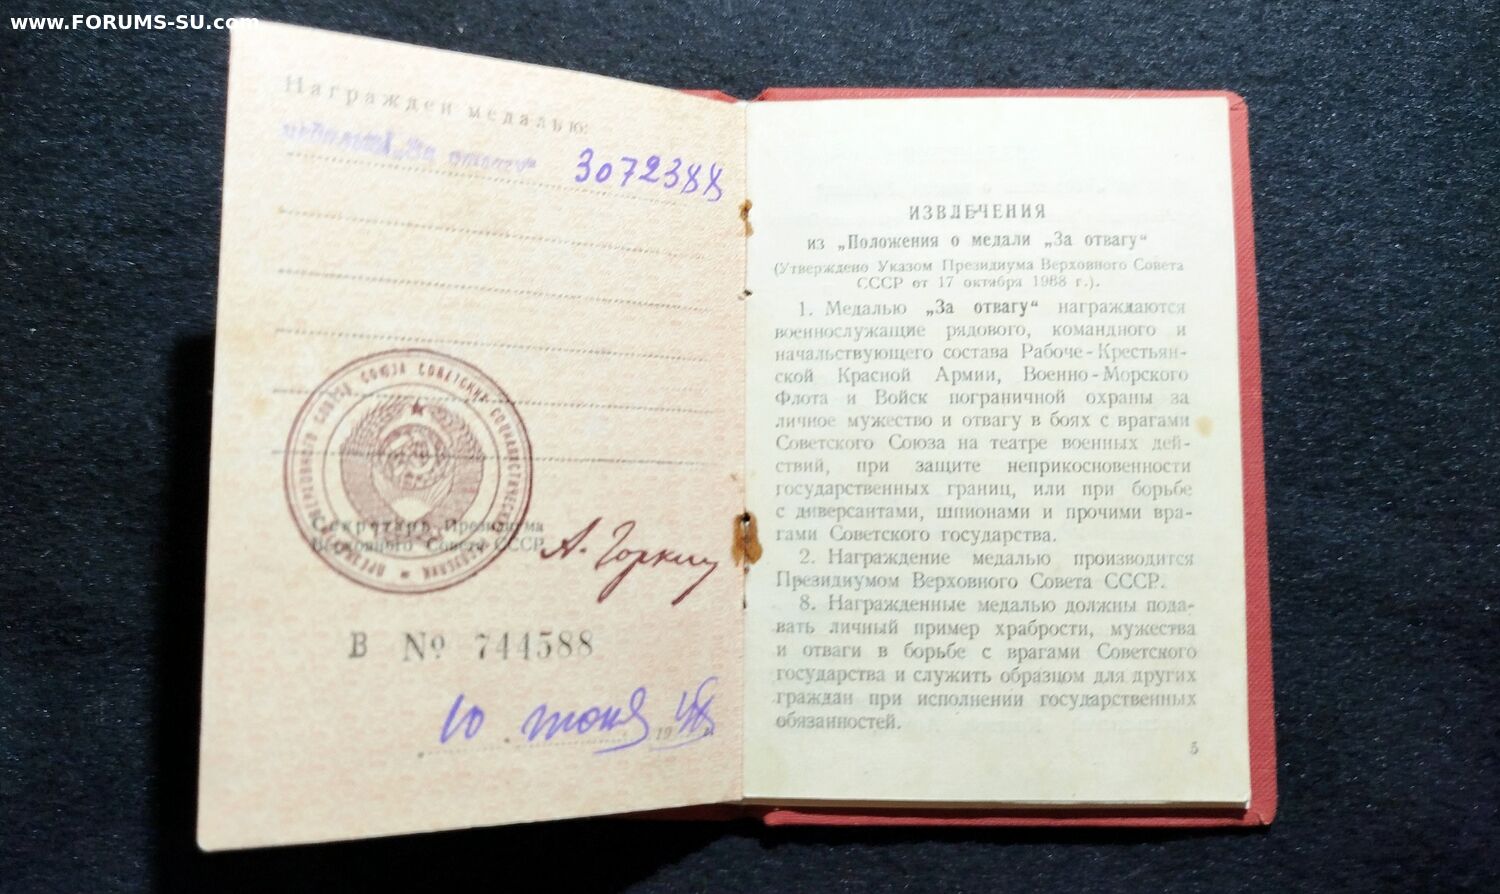 www.FORUMS-SU.com
Награжден медалью:
медалью „За отвагу“ 3072388
ПРЕЗИДИУМ ВЕРХОВНОГО СОВЕТА СОЮЗА СОВЕТСКИХ СОЦИАЛИСТИЧЕСКИХ РЕСПУБЛИК
Секретарь Президиума
Верховного Совета СССР
А. Горкин
В № 744588
10 июня 1948 г.
ИЗВЛЕЧЕНИЯ
из „Положения о медали „За отвагу“
(Утверждено Указом Президиума Верховного Совета
СССР от 17 октября 1938 г.).
1. Медалью „За отвагу“ награждаются
военнослужащие рядового, командного и
начальствующего состава Рабоче-Крестьян-
ской Красной Армии, Военно-Морского
Флота и Войск пограничной охраны за
личное мужество и отвагу в боях с врагами
Советского Союза на театре военных дей-
ствий, при защите неприкосновенности
государственных границ, или при борьбе
с диверсантами, шпионами и прочими вра-
гами Советского государства.
2. Награждение медалью производится
Президиумом Верховного Совета СССР.
3. Награжденные медалью должны пода-
вать личный пример храбрости, мужества
и отваги в борьбе с врагами Советского
государства и служить образцом для других
граждан при исполнении государственных
обязанностей.
5